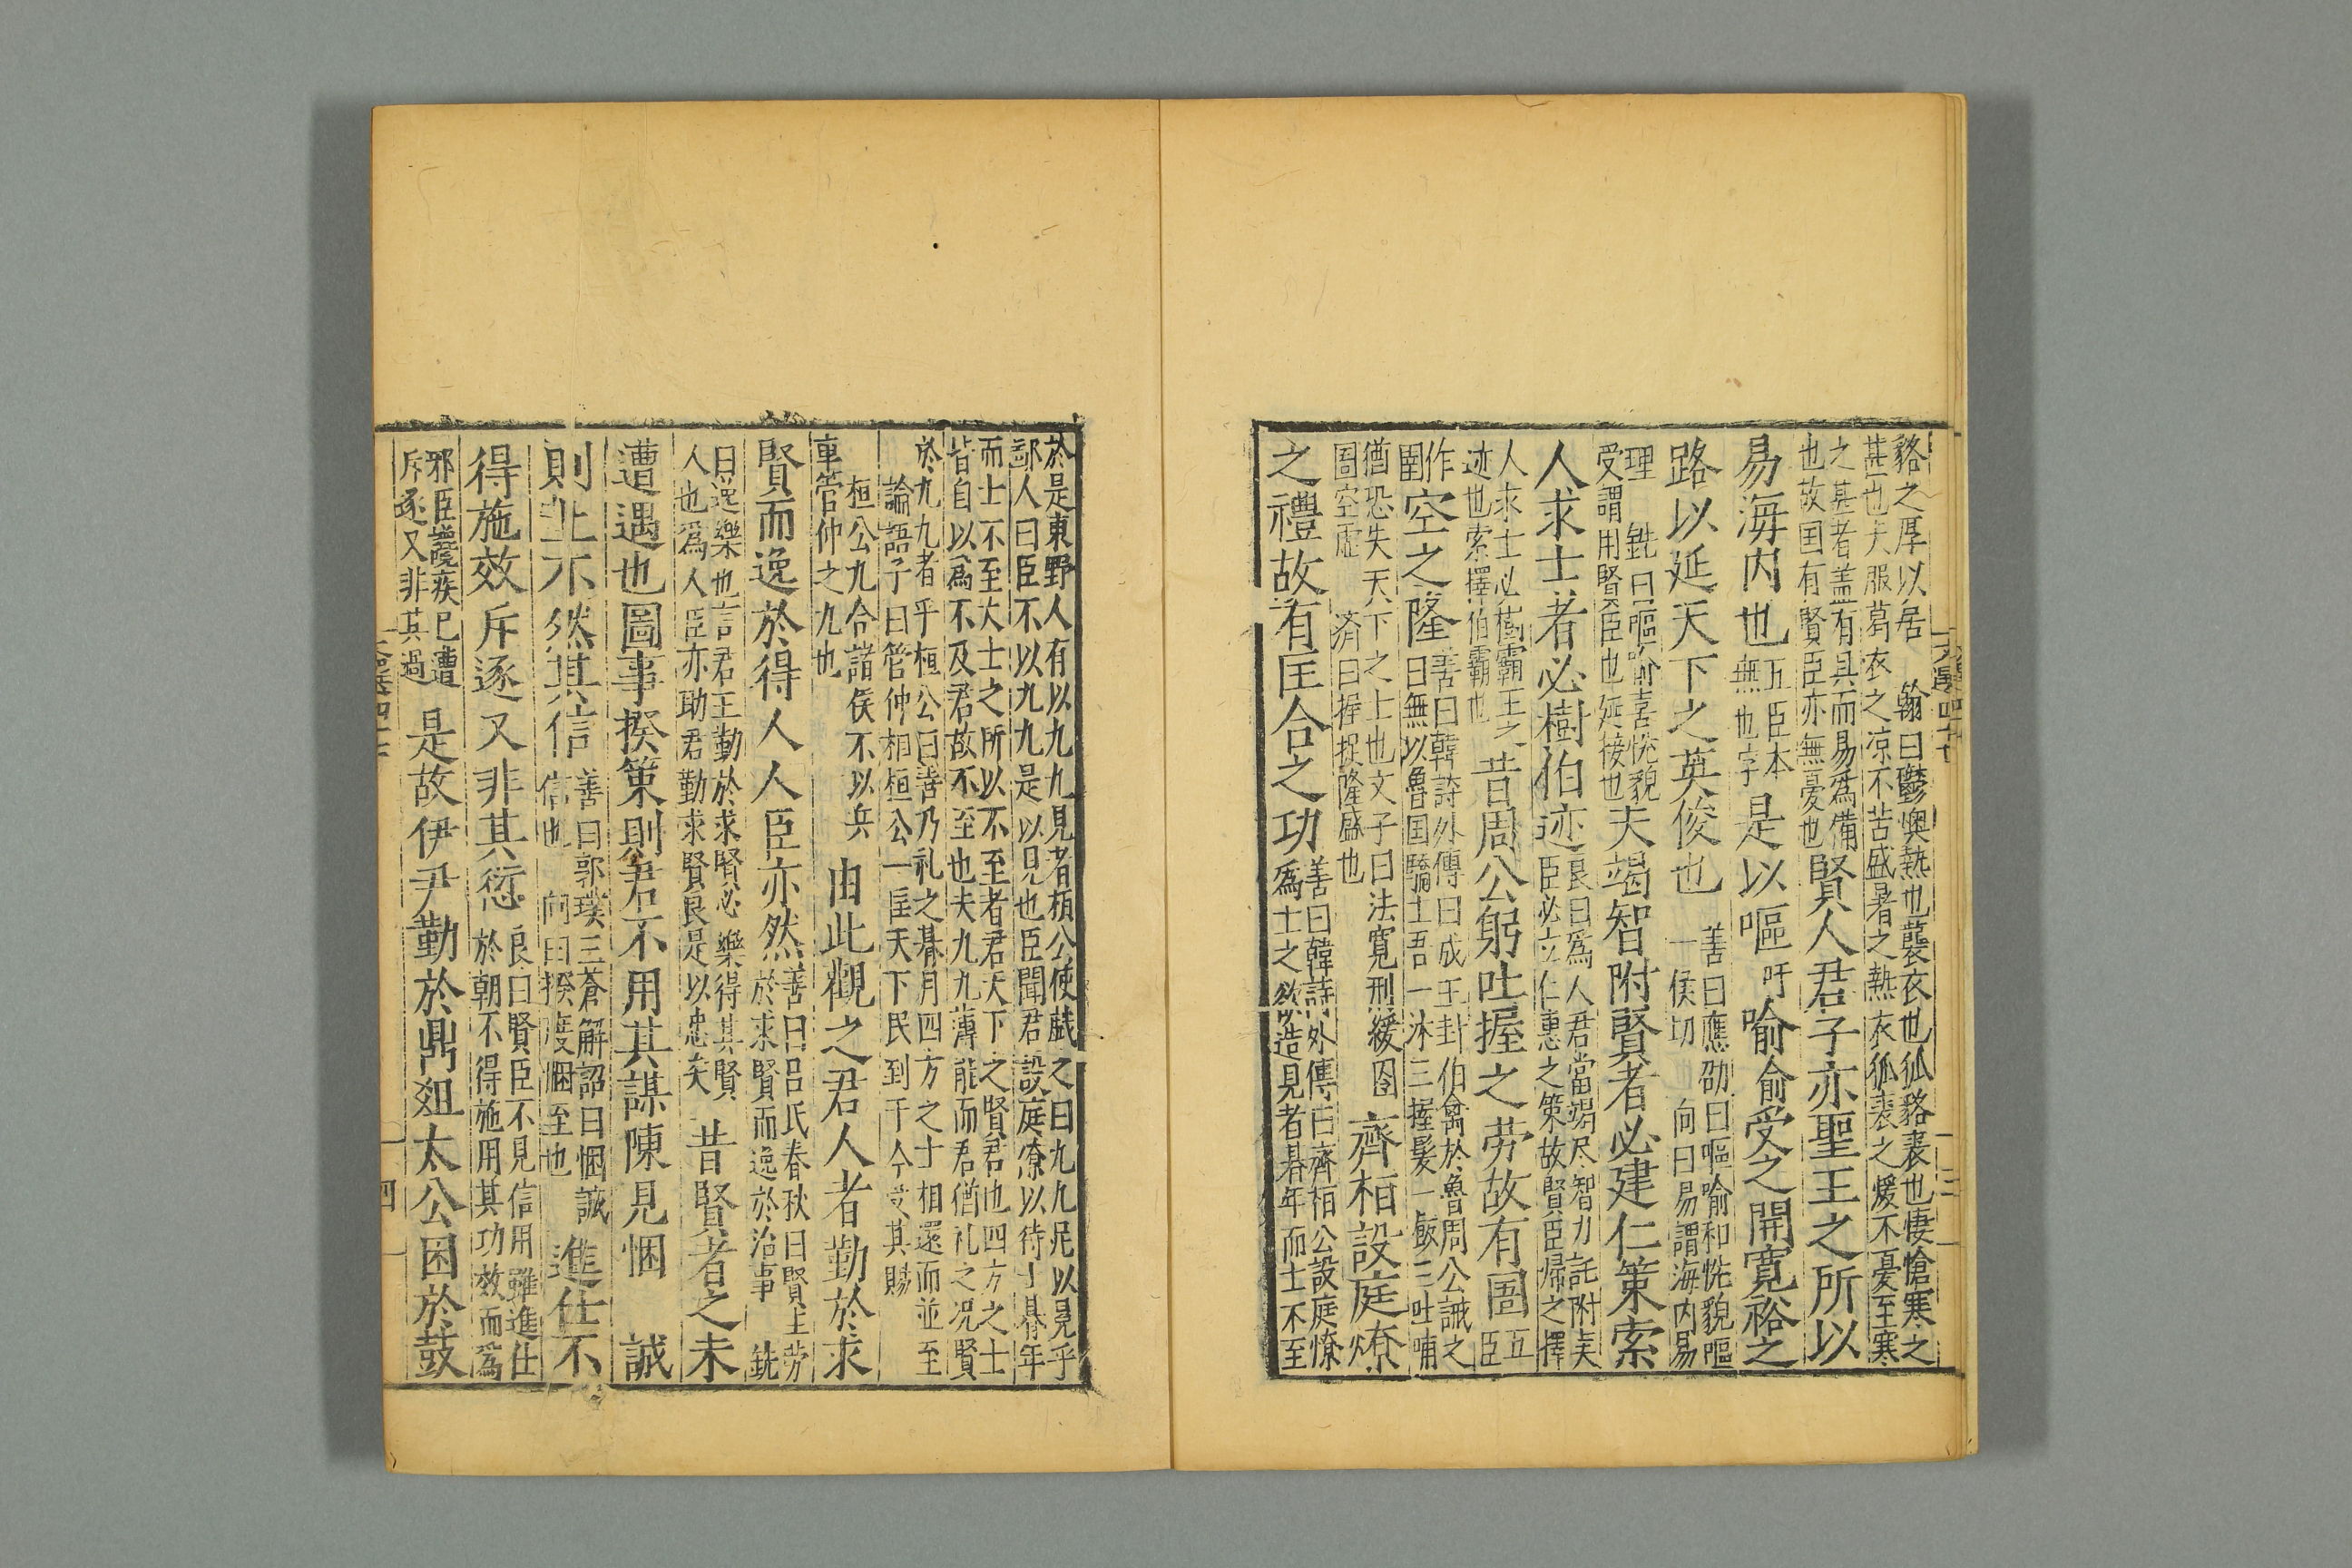 貉之厚以居 翰曰鬱燠熱也襲衣也狐貉裘也悽愴寒之
甚也夫服葛衣之凉不苦盛暑之熱衣狐裘之煖不憂至寒
之甚者盖有具而易爲備
也故国有賢臣亦無憂也
賢人君子亦聖王之所以
易海内也
五臣本
無也字
是以嘔吁喻俞受之開寛裕之
路以延天下之英俊也
善曰應劭曰嘔喻和恱貌嘔
一侯切 向曰易謂海内易
理 銑曰嘔喻喜恱貌
受謂用賢臣也延接也
夫竭智附賢者必建仁策索
人求士者必樹伯迹
良曰爲人君當竭尽智力託附矣
臣必立仁惠之策故賢臣歸之擇
人求士必樹霸王之
迹也索擇伯霸也
昔周公躬吐握之劳故有圄
五臣
作圉
空之隆
善曰韓詩外傳曰成王封伯禽於魯周公誡之
曰無以魯国驕士吾一沐三握髮一飯三吐哺
猶恐失天下之士也文子曰法寛刑緩囹
圄空虚 濟曰握捉隆盛也
齊桓設庭燎
之禮故有匡合之功
善曰韓詩外傳曰齊桓公設庭燎
爲士之欲造見者朞年而士不至
於是東野人有以九九見者桓公使戯之曰九九足以見乎
鄙人曰臣不以九九是以見也臣聞君設庭燎以待士朞年
而士不至夫士之所以不至者君天下之賢君也四方之士
皆自以爲不及君故不至也夫九九薄能而君猶礼之况賢
於九九者乎桓公曰善乃礼之朞月四方之士相還而並至
論語子曰管仲相桓公一匡天下民到于今受其賜
桓公九合諸侯不以兵
車管仲之力也
由此觀之君人者勤於求
賢而逸於得人人臣亦然
善曰吕氏春秋曰賢主劳
於求賢而逸於治事 銑
曰逸樂也言君王勤於求賢必樂得其賢
人也爲人臣亦助君勤求賢良是以忠矣
昔賢者之未
遭遇也圖事揆策則君不用其謀陳見悃 誠
則上不然其信
善曰郭璞三蒼解詔曰悃誠
信也 向曰揆度悃至也
進仕不
得施效斥逐又非其愆
良曰賢臣不見信用雖進仕
於朝不得施用其功效而爲
邪臣讒疾已遭
斥逐又非其過
是故伊尹勤於鼎爼太公困於鼓
四